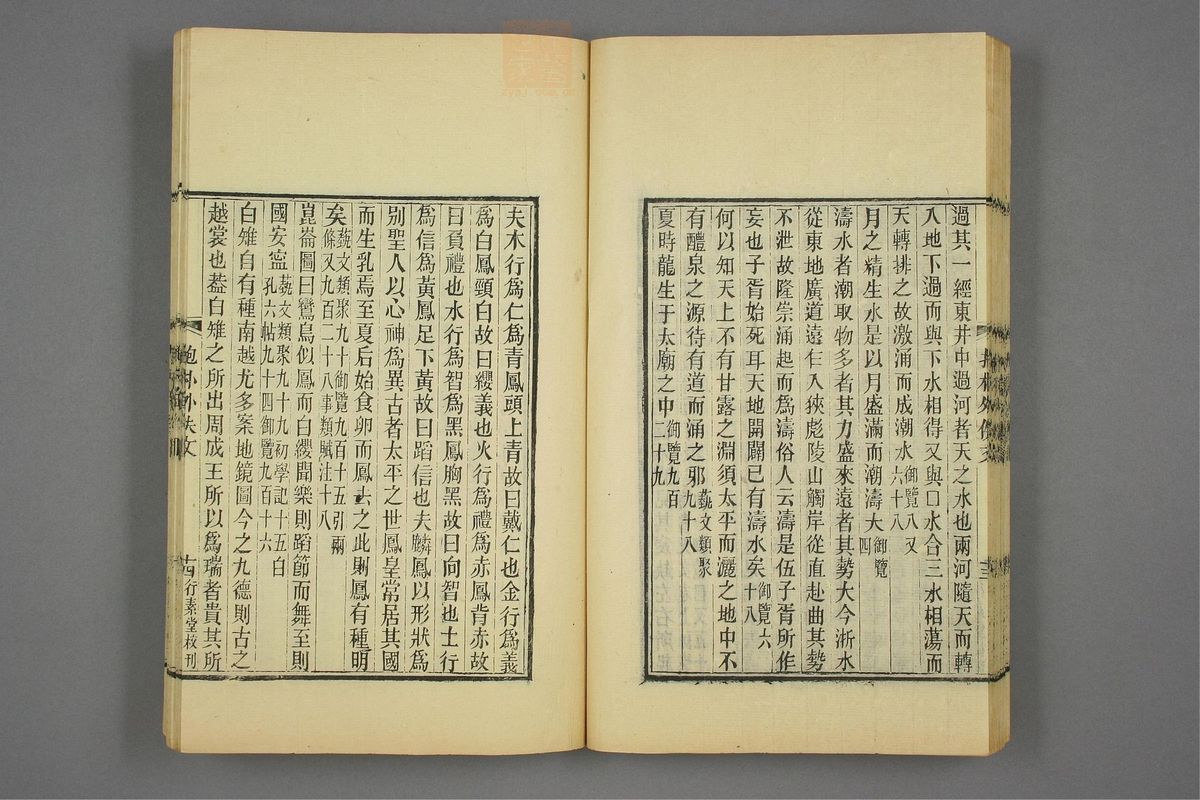 過其一經東井中過河者天之水也兩河隨天而轉
入地下過而與下水相得又與口水合三水相蕩而
天轉排之故激涌而成潮水御覽八又六十八
月之精生水是以月盛滿而潮濤大御覽四
濤水者潮取物多者其力盛來遠者其勢大今浙水
從東地廣道遠乍入狹彪陵山觸岸從直赴曲其勢
不泄故隆崇涌起而爲濤俗人云濤是伍子胥所作
妄也子胥始死耳天地開闢已有濤水矣御覽六十八
何以知天上不有甘露之淵須太平而灑之地中不
有醴泉之源待有道而涌之邪藝文類聚九十八
夏時龍生于太廟之中御覽九百二十九
夫木行爲仁爲青鳳頭上青故曰戴仁也金行爲義
爲白鳳頸白故曰纓義也火行爲禮爲赤鳳背赤故
曰負禮也水行爲智爲黑鳳胸黑故曰向智也土行
爲信爲黃鳳足下黃故曰蹈信也夫麟鳳以形狀爲
別聖人以心神爲異古者太平之世鳳皇常居其國
而生乳焉至夏后始食卵而鳳去之此則鳳有種明
矣藝文類聚九十御覽九百十五引兩條又九百二十八事類賦注十八
崑崙圖曰鸞鳥似鳳而白纓聞樂則蹈節而舞至則
國安寍藝文類聚九十九初學記十五白孔六帖九十四御覽九百十六
白雉自有種南越尤多案地鏡圖今之九德則古之
越裳也葢白雉之所出周成王所以爲瑞者貴其所
抱朴外佚文
十四
行素堂校刊